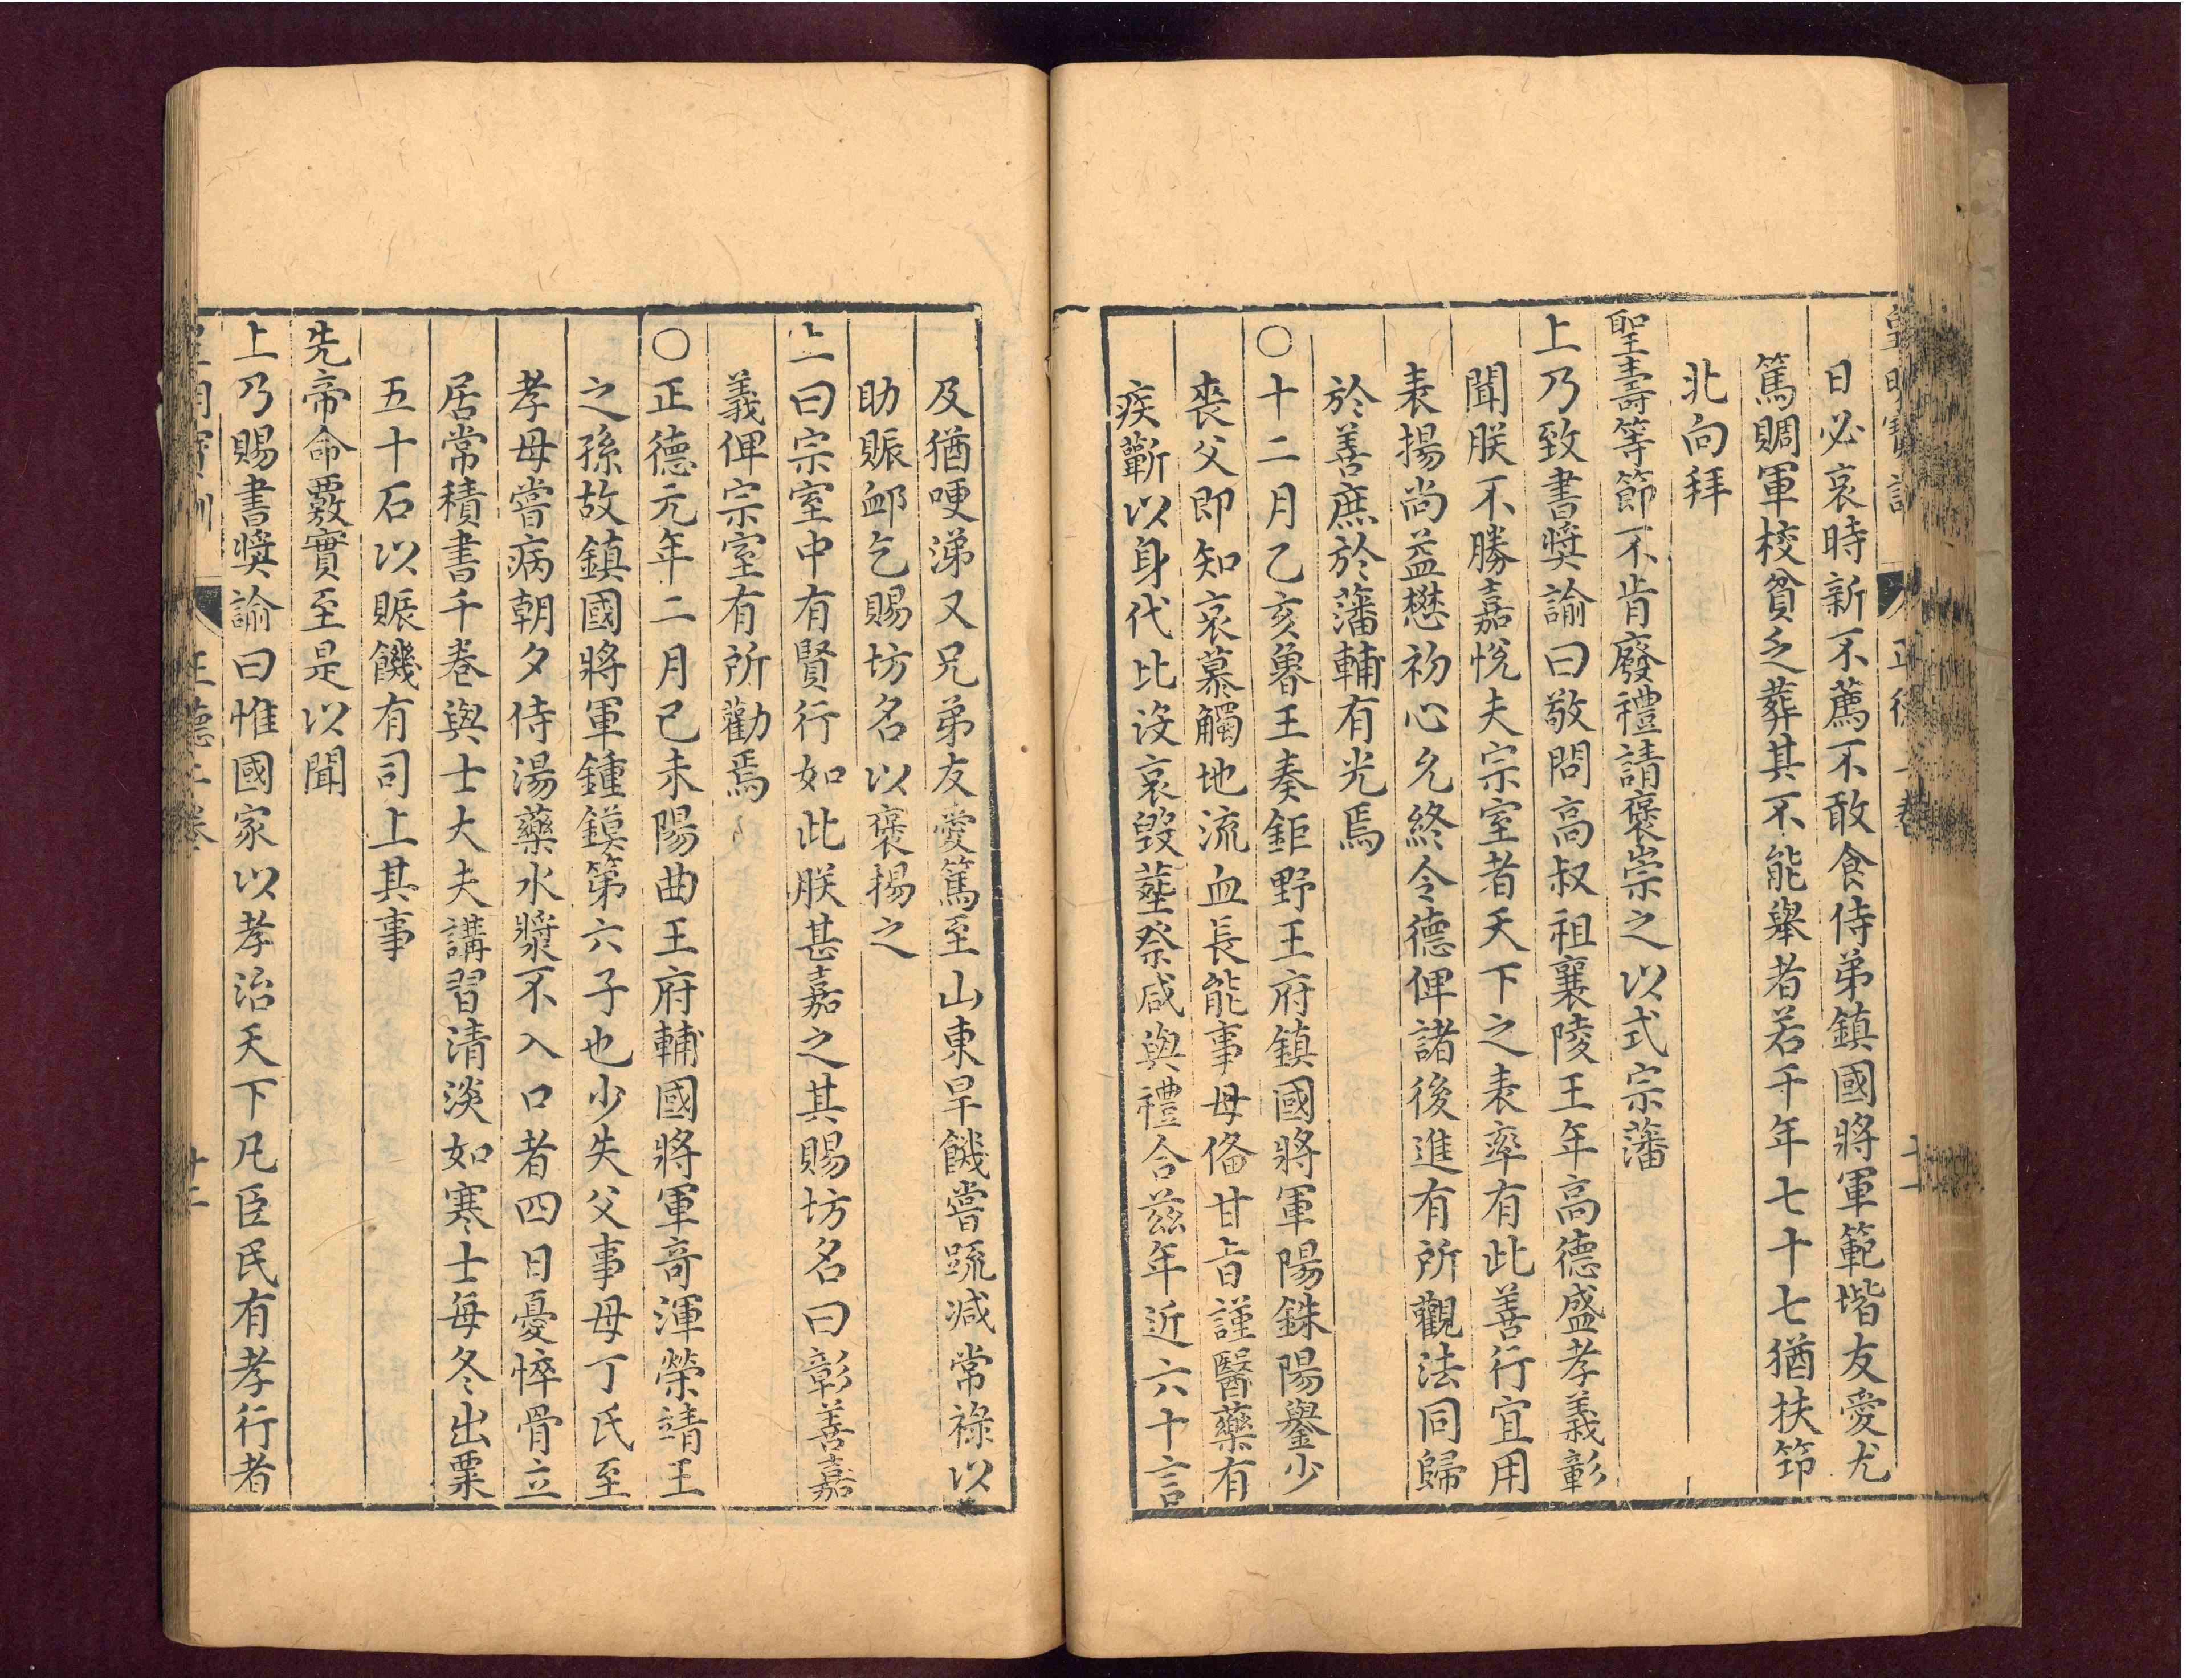 皇明寶訓 正德一卷 十二
日必哀時新不薦不敢食侍弟鎮國將軍範堦友愛尤
篤賙軍校貧乏葬其不能舉者若干年七十七猶扶笻
北向拜
聖壽等節不肯廢禮請褒崇之以式宗藩
上乃致書奬諭曰敬問高叔祖襄陵王年高德盛孝義彰
聞朕不勝嘉悅夫宗室者天下之表率有此善行宜用
表揚尚益懋初心允終令德俾諸後進有所觀法同歸
於善庶於藩輔有光焉
○十二月乙亥魯王奏鉅野王府鎮國將軍陽銖陽鑾少
喪父即知哀慕觸地流血長能事母備甘旨謹醫藥有
疾蘄以身代比沒哀毀塟祭咸與禮合茲年近六十言
及猶哽涕又兄弟友愛篤至山東旱饑嘗疏減常祿以
助賑卹乞賜坊名以褒揚之
上曰宗室中有賢行如此朕甚嘉之其賜坊名曰彰善嘉
義俾宗室有所勸焉
○正德元年二月己未陽曲王府輔國將軍奇渾榮靖王
之孫故鎮國將軍鍾鏌第六子也少失父事母丁氏至
孝母嘗病朝夕侍湯藥水漿不入口者四日憂悴骨立
居常積書千卷與士大夫講習清淡如寒士每冬出粟
五十石以賑饑有司上其事
先帝命覈實至是以聞
上乃賜書奬諭曰惟國家以孝治天下凡臣民有孝行者
皇明寶訓 正德一卷 十二